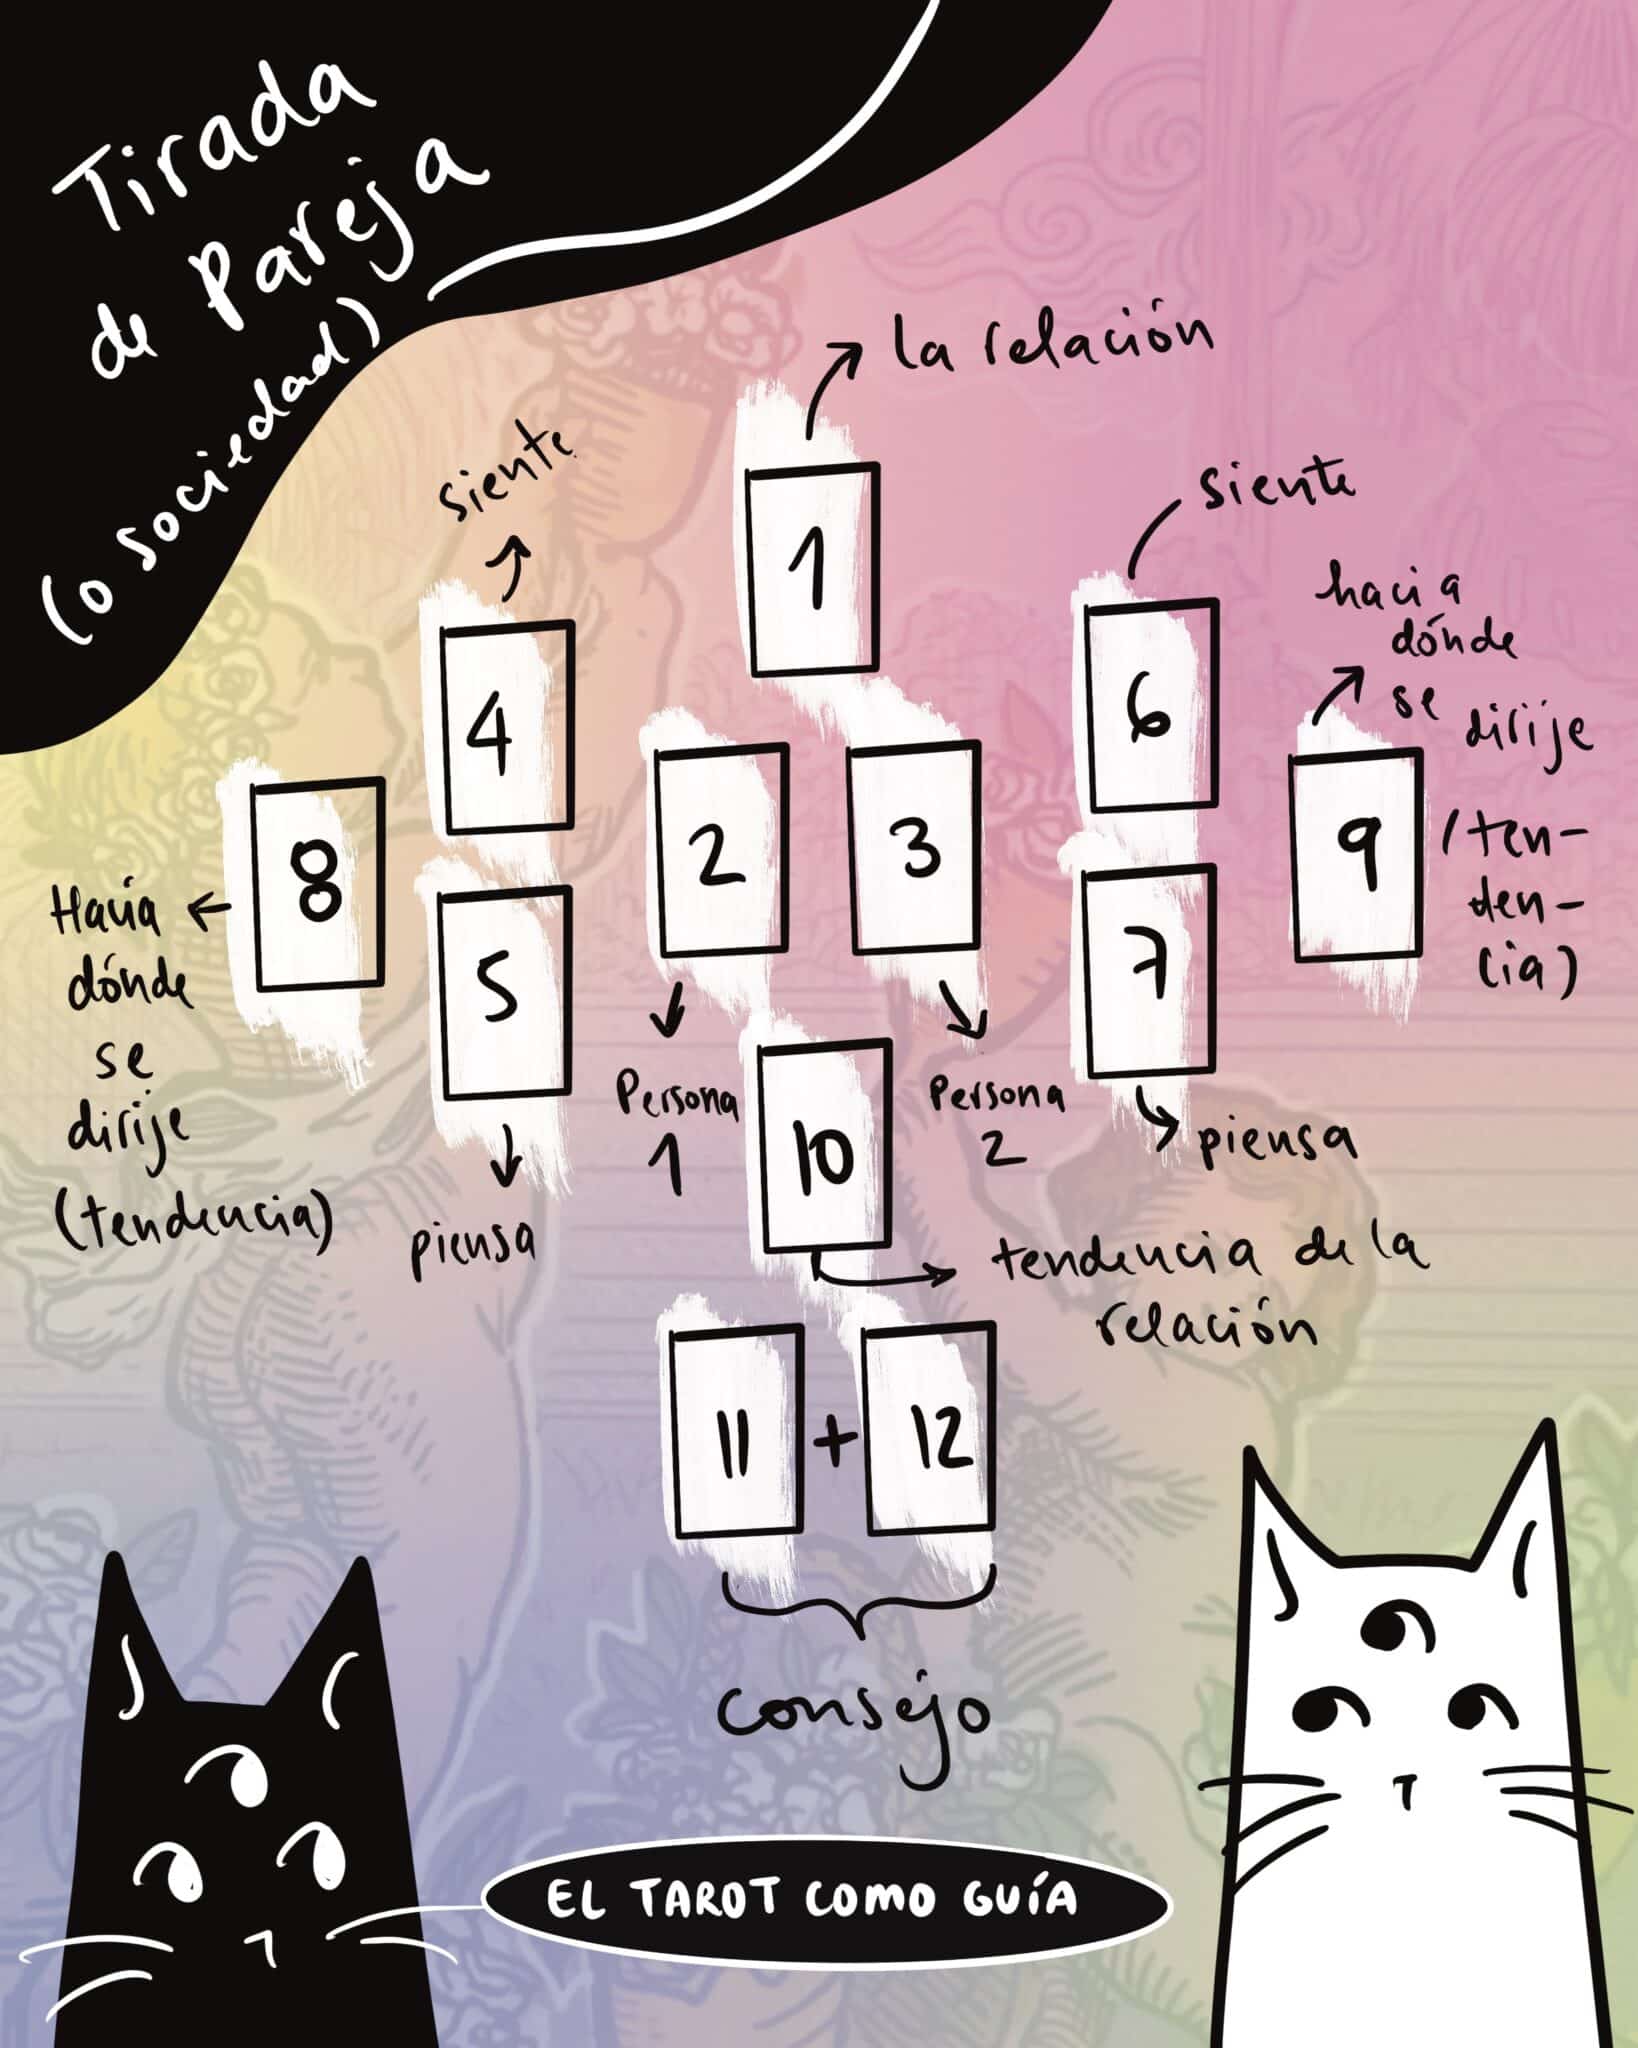 Tirada
de Pareja
(o sociedad)
la relación
siente
siente
1
hacia
dónde
se dirije
(ten-
den-
cia)
4
6
8
2
3
9
5
7
Hacia
dónde
se
dirije
(tendencia)
Persona
1
Persona
2
10
piensa
piensa
tendencia de la
relación
11 + 12
consejo
EL TAROT COMO GUÍA